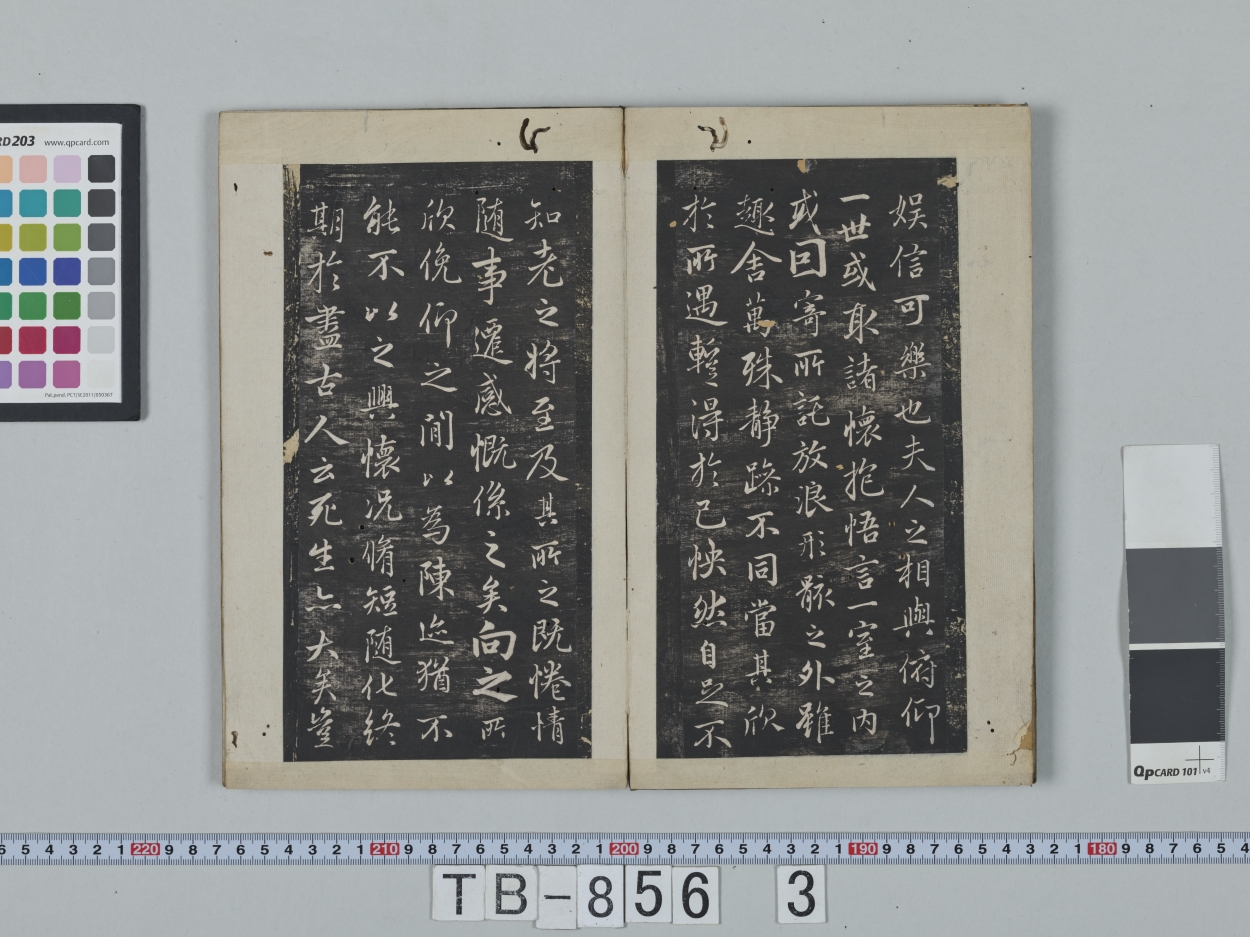 娛信可樂也夫人之相與俯仰
一世或取諸懷抱悟言一室之内
或因寄所託放浪形骸之外雖
趣舍萬殊靜躁不同當其欣
於所遇暫得於己怏然自足不
知老之將至及其所之既惓情
随事遷感慨係之矣向之所
欣俛仰之閒以為陳迹猶不
能不以之興懷况脩短随化終
期於盡古人云死生亦大矣豈
RD203 www.qpcard.com
QPCARD 101 v4
6 5 4 3 2 1 220 9 8 7 6 5 4 3 2 1 210 9 8 7 6 5 4 3 2 1 200 9 8 7 6 5 4 3 2 1 190 9 8 7 6 5 4 3 2 1 180 9 8 7 6 5 4
TB-856 3